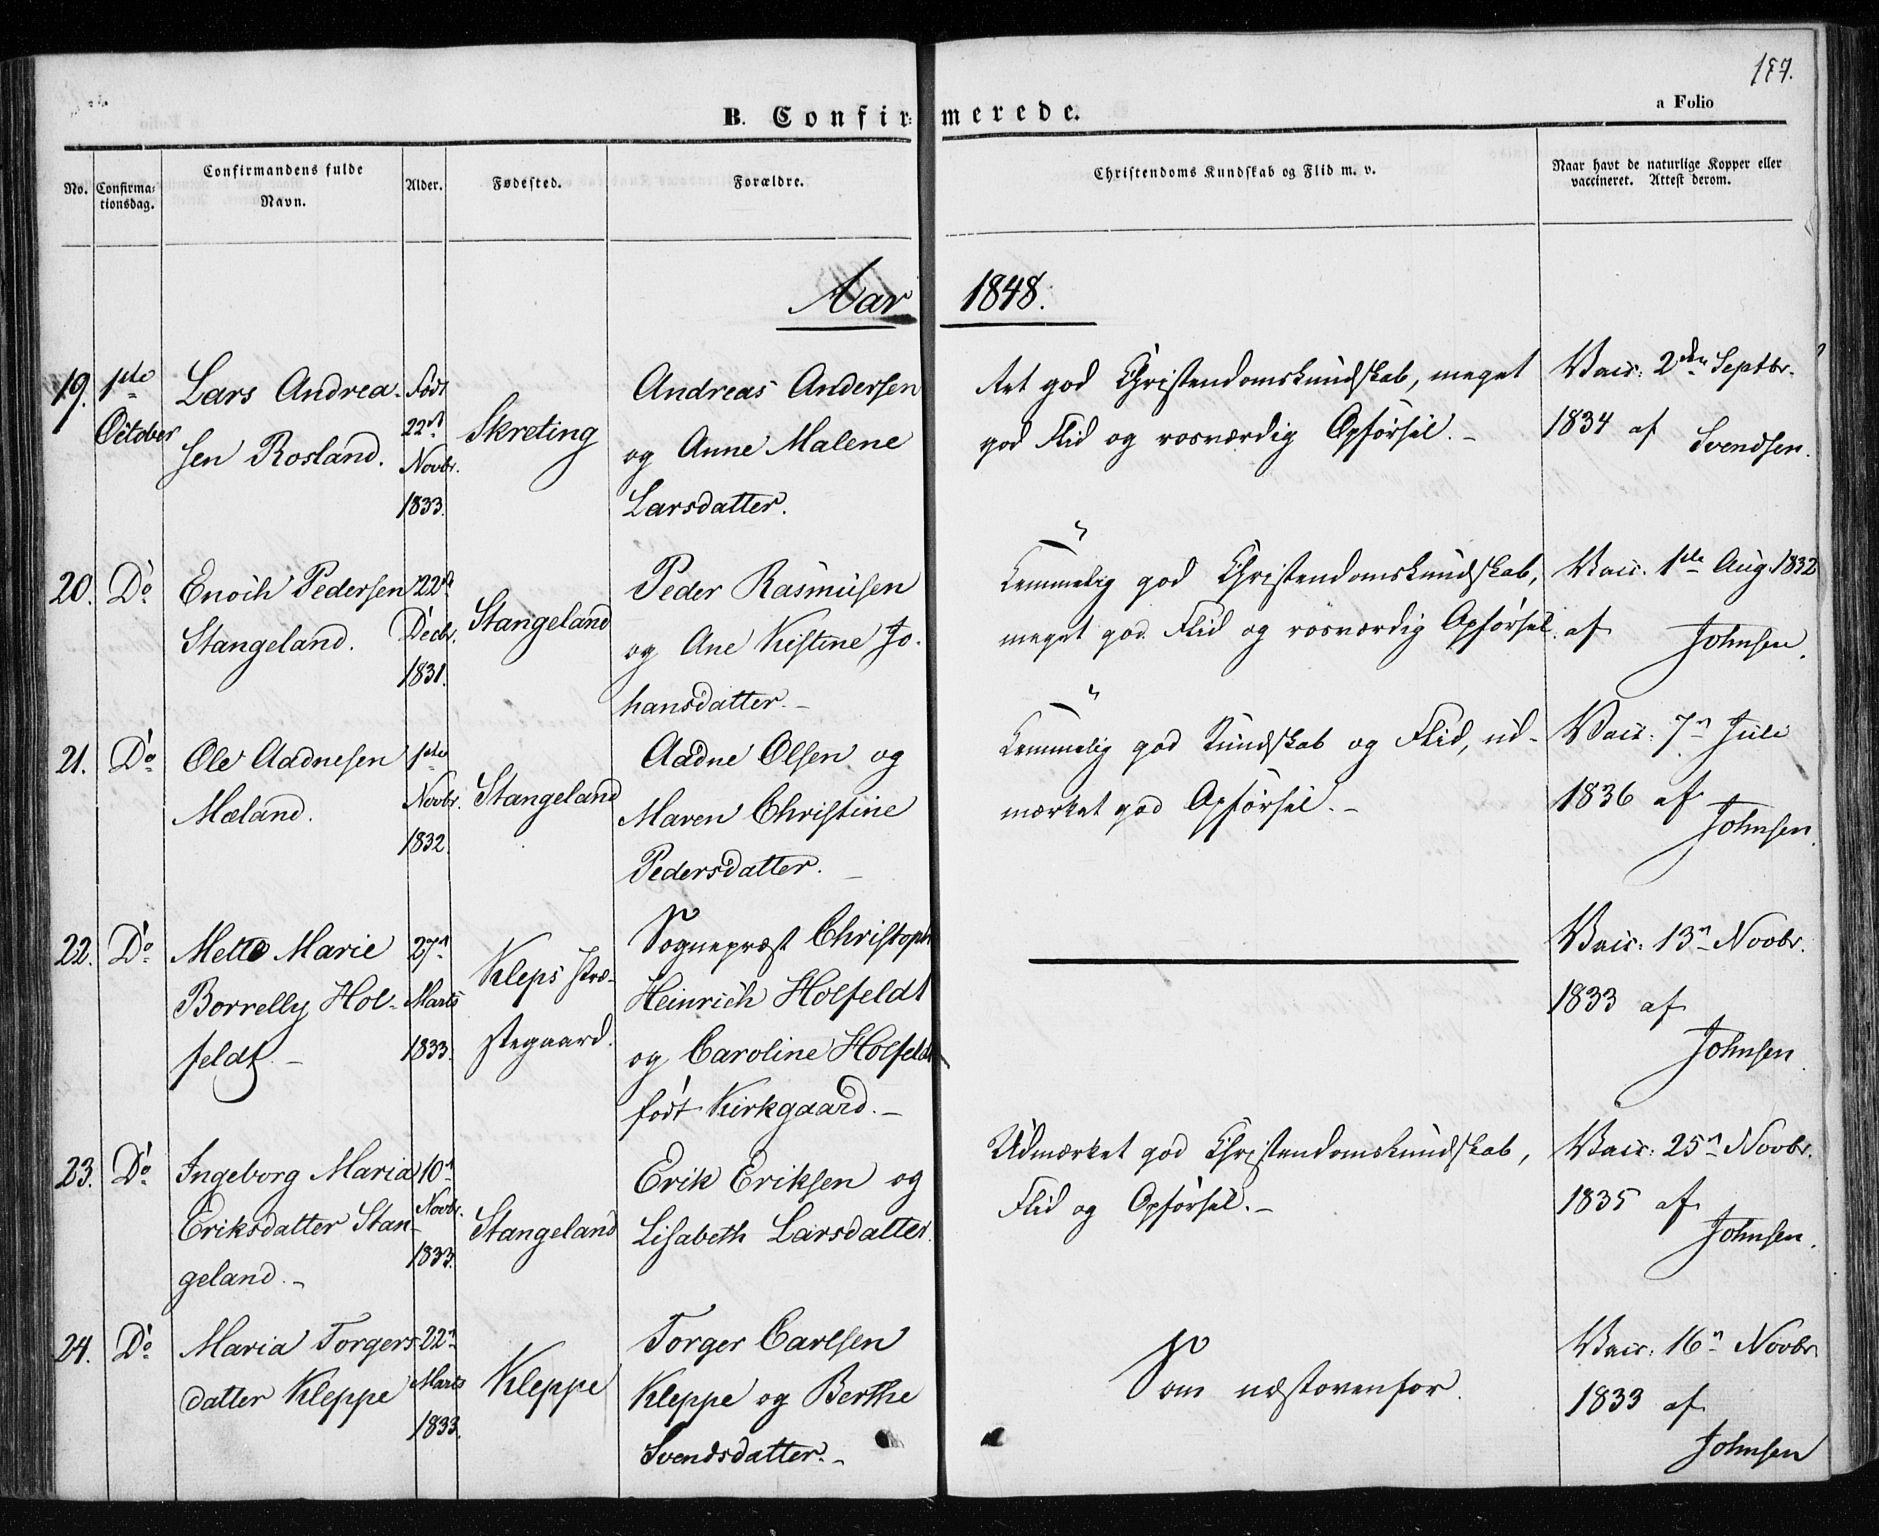 a Folio
B. Confir= merede.
No.
Confirma=
tionsdag.
Confirmandens fulde
Navn.
Alder.
Fødested.
Forældre.
Christendoms Kundskab og Flid m. v.
Naar havt de naturlige Kopper eller
vaccineret. Attest derom.
Aar 1848.
19.
1ste
October
Lars Andrea-
sen Rosland.
Født
22de
Novbr.
1833.
Skreting
Andreas Andersen
og Anne Malene
Larsdatter.
god Christendomskundskab, meget
god Flid og rosværdig Opførsel.-
Vacc: 2den Septbr.
1834 af
Svendsen.
20.
Do
Enoch Pedersen
Stangeland.
22de
Decbr.
1831.
Stangeland
Peder Rasmusen
og Ane Kistine Jo-
hansdatter.-
Temmelig god Christendomskundskab,
meget god Flid og rosværdig Opførsel.
Vacc. 1ste Aug. 1832
af
Johnsen.
21.
Do
Ole Aadnesen
Mæland.
1ste
Novbr.
1832.
Stangeland
Aadne Olsen og
Maren Christine
Pedersdatter.-
Temmelig god Kundskab og Flid, ud-
mærket god Opførsel.-
Vacc: 7n Juli
1836 af
Johnsen.
22.
Do
Mette Marie
Borrelly Hol-
feldt.-
27n
Marts
1833.
Kleps Præ-
stegaard.
Sognepræst Christoph
Heinrich Holfeldt
og Caroline Holfeldt
født Kirkgaard.-
Vacc: 13n Novbr.
1833 af
Johnsen.
23.
Do
Ingeborg Maria
Eriksdatter Stan-
geland.-
10n
Novbr.
1833.
Stangeland
Erik Eriksen og
Lisabeth Larsdatter.
Udmærket god Christendomskundskab,
Flid og Opførsel.-
Vacc: 25n Novbr.
1835 af
Johnsen.
24.
Do
Maria Torgers-
datter Kleppe
22n
Marts
1833.
Kleppe
Torger Carlsen
Kleppe og Berthe
Svendsdatter.-
Som næstovenfor.
Vacc: 16n Novbr.
1833 af
Johnsen